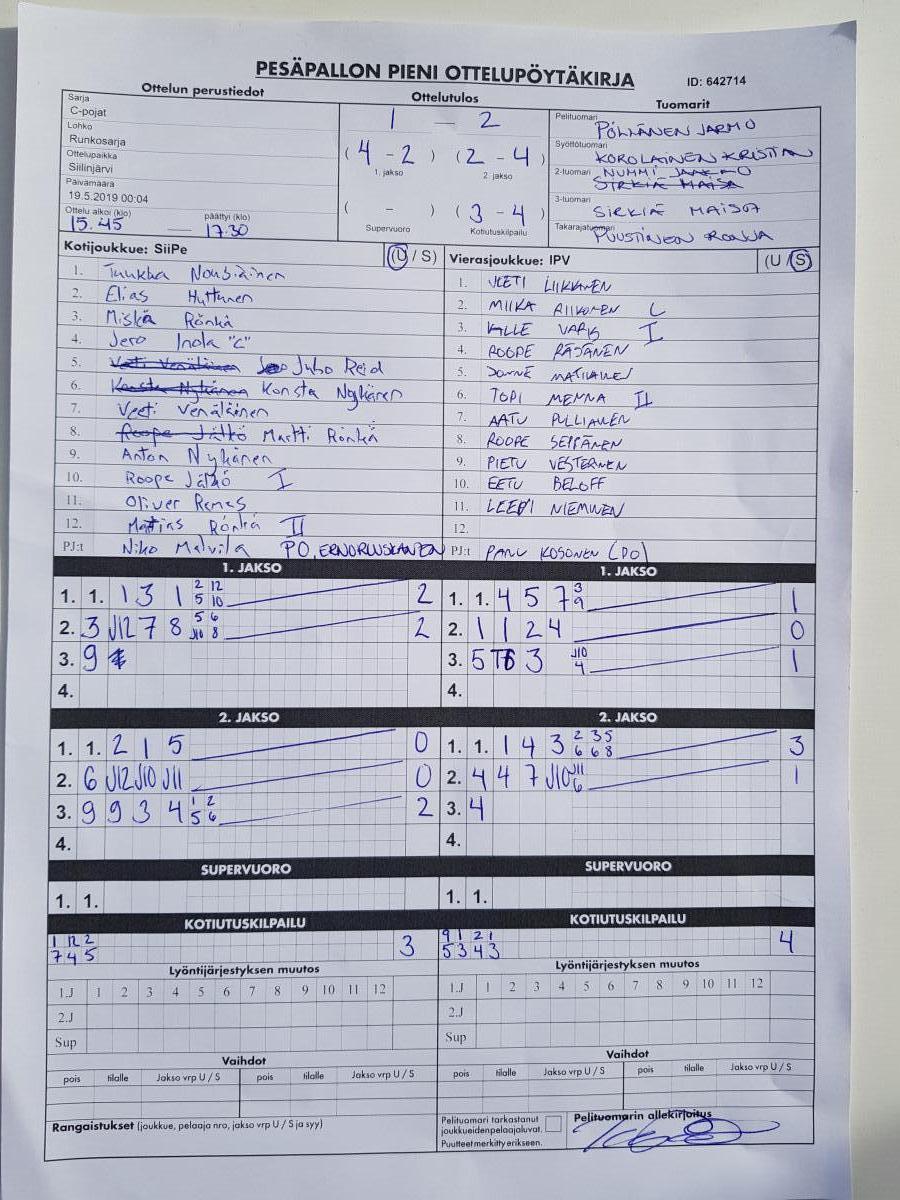 PESÄPALLON PIENI OTTELUPÖYTÄKIRJA ID: 642714
Ottelun perustiedot Ottelutulos Tuomarit
Sarja
C-pojat
Lohko
Runkosarja
Ottelupaikka
Siilinjärvi
Päivämäärä
19.5.2019 00:04
Ottelu alkoi (klo) päättyi (klo)
15.45 — 17.30
1 — 2
(4 - 2) (2 - 4)
1. jakso 2. jakso
( - ) (3 - 4)
Supervuoro Kotiutuskilpailu
Pelituomari
PÖLLÄNEN JARMO
Syöttötuomari
KOROLAINEN KRISTIAN
2-tuomari NUMMI JAAKKO
SIRKIÄ MAISA
3-tuomari
SIRKIÄ MAISA
Takarajatuomari
PUUSTINEN RONJA
Kotijoukkue: SiiPe (U / S)
1. Tuukka Nousiainen
2. Elias Huttunen
3. Miska Rönkä
4. Jero Inola "C"
5. Veeti Venäläinen Juho Reid
6. Konsta Nykänen Konsta Nykänen
7. Veeti Venäläinen
8. Roope Jätkö Martti Rönkä
9. Anton Nykänen
10. Roope Jätkö I
11. Oliver Remes
12. Mattias Rönkä II
PJ:t Niko Malvila PO,
Vierasjoukkue: IPV (U / S)
1. VEETI LIIKKANEN
2. MIIKA RIIKONEN C
3. KALLE VARIS I
4. ROOPE RÄSÄNEN
5. JONNE MATILAINEN
6. TOPI MENNA II
7. AATU PULLIAINEN
8. ROOPE SEPPÄNEN
9. PIETU VESTERINEN
10. EETU BELOFF
11. LEEVI NIEMINEN
12.
PJ:t PANU KOSONEN (PO)
1. JAKSO
1. 1. 1 3 1 2 12 2
5 10
2. 3 J12 7 8 5 6 2
J10 8
3. 9
4.
1. JAKSO
1. 1. 4 5 7 3 1
9
2. 1 1 2 4 0
3. 5 T6 3 J10 1
4
4.
2. JAKSO
1. 1. 2 1 5 0
2. 6 J12 J10 J11 0
3. 9 9 3 4 1 2 2
5 6
4.
2. JAKSO
1. 1. 1 4 3 2 3 5 3
6 6 8
2. 4 4 7 J10 J11 1
6
3. 4
4.
SUPERVUORO
1. 1.
SUPERVUORO
1. 1.
KOTIUTUSKILPAILU
1 12 2 3
7 4 5
KOTIUTUSKILPAILU
9 1 2 1 4
5 3 4 3
Lyöntijärjestyksen muutos
1.J 1 2 3 4 5 6 7 8 9 10 11 12
2.J
Sup
Lyöntijärjestyksen muutos
1.J 1 2 3 4 5 6 7 8 9 10 11 12
2.J
Sup
Vaihdot
pois tilalle Jakso vrp U / S pois tilalle Jakso vrp U / S
Vaihdot
pois tilalle Jakso vrp U / S pois tilalle Jakso vrp U / S
Rangaistukset (joukkue, pelaaja nro, jakso vrp U / S ja syy)
Pelituomari tarkastanut
joukkueidenpelaajaluvat.
Puutteet merkitty erikseen.
Pelituomarin allekirjoitus